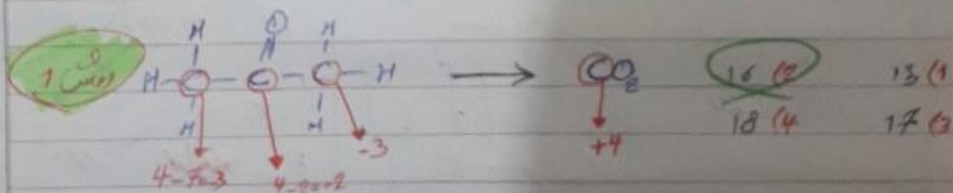 روش 1
H O H
H-C-C-C-H → CO₂
H H
4-7=-3 4-2=+2 -3 +4
16 (2 15 (1
18 (4 17 (3